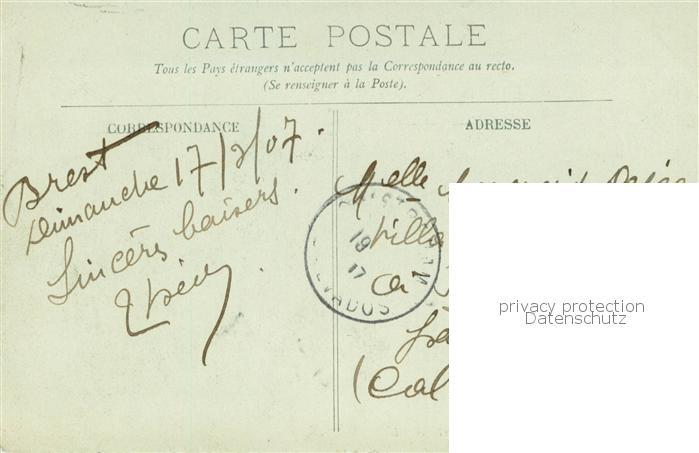 CARTE POSTALE
Tous les Pays étrangers n'acceptent pas la Correspondance au recto.
(Se renseigner à la Poste).
CORRESPONDANCE
ADRESSE
Brest
Dimanche 17/3/07.
Sincères baisers.
Melle
Villa
(Cal
19
17
VADOS
privacy protection
Datenschutz